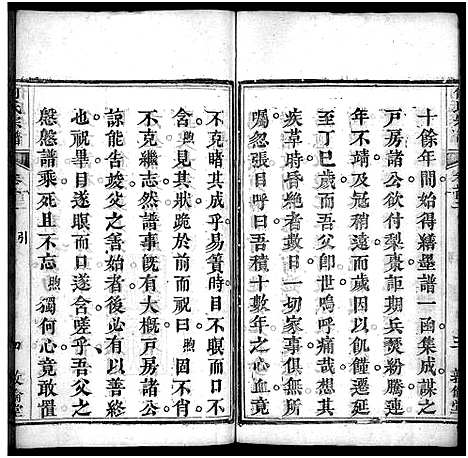 十餘年間始得繕墨譜一函集成謀之
戶房諸公欲付梨棗詎期兵燹紛騰連
年不靖及冠稍遠又歲因以飢饉遷延
至丁巳歲而吾父卽世嗚呼痛哉想其
疾革時吾繼者數次一切家事俱無所
囑忽張目而曰吾積十數年之心血竟
不克睹其成乎易簀時目不瞑而口不
含煦見其狀跪於前而祝曰煦固不肖
不克繼志然譜事旣有大概戶房諸公
諒能告竣父之善始者後必有以善終
也祝畢目遂瞑而口遂含嗟乎吾父之
慇慇譜乘死且不忘煦獨何心竟敢置
氏宗譜
卷首
引
敦倫堂
三